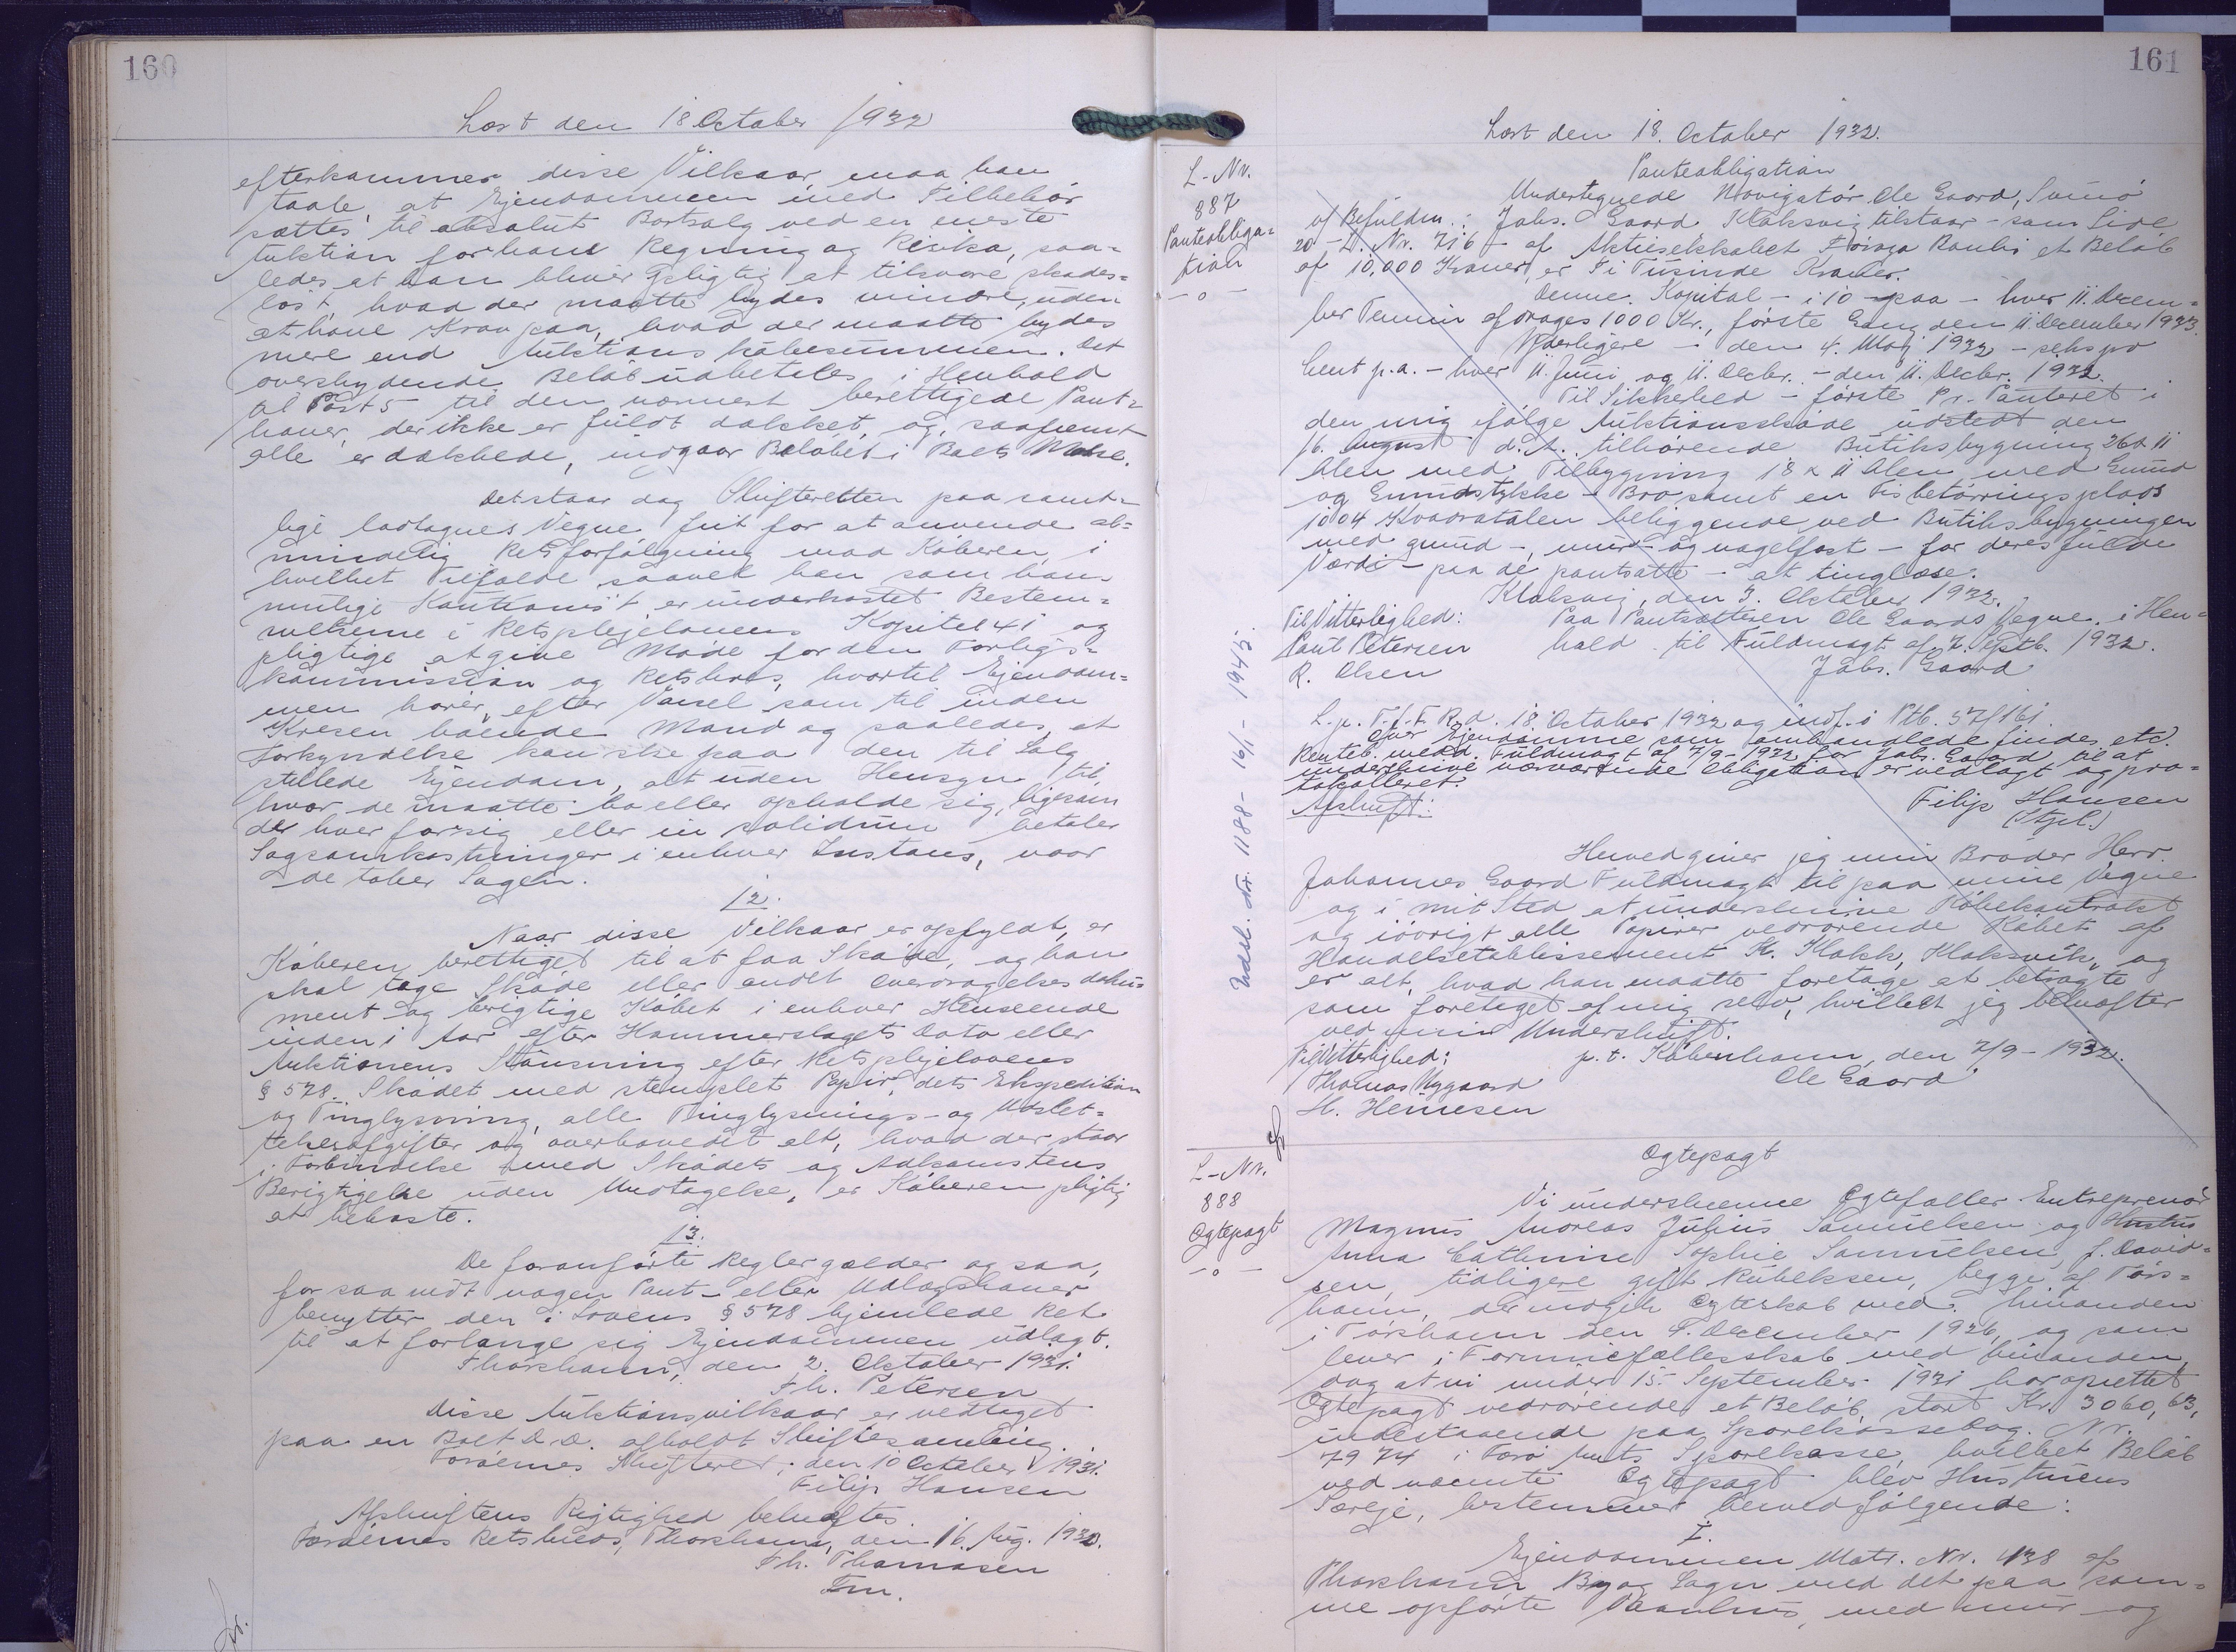 160
Læst den 18 October 1932
efterkommer disse Vilkaar, maa han
taale, at Ejendommen med Tilbehör
sættes til absolut Bortsalg ved en eneste
Auktion for hans Regning og Risiko, saa-
ledes at han bliver pligtig at tilsvare skades-
löst, hvad der maatte bydes mindre, uden
at have Krav paa, hvad der maatte bydes
mere end Auktionsköbesummen. Det
overskydende Belöb udbetales i Henhold
til Post 5 til den nærmest berettigede Pant-
haver, der ikke er fuldt dækket, og, saafremt
alle er dækkede, indgaar Belöbet i Boets Masse.
Det staar dog Skifteretten paa samt-
lige Lodtagnes Vegne frit for at anvende al-
mindelig Retsforfölgning mod Köberen, i
hvilket Tilfælde saavel han som han-
mulige Kautionist er underkastet Bestem-
melserne i Retsplejelovens Kapitel 41 og
pligtige at give Möde for den Forligs-
kommission og Retskreds, hvortil Ejendom-
men hörer, efter Varsel som til inden
Kresen boende Mand og saaledes, at
Forkyndelse kan ske paa den til Salg
stillede Ejendom, alt uden Hensyn til,
hvor de maatte bo eller opholde sig, ligesom
de hver for sig eller in solidum betaler
Sagsomkostninger i enhver Instans, naar
de taber Sagen.
12.
Naar disse Vilkaar er opfyldt, er
Köberen berettiget til at faa Sköde, og han
skal tage Sköde eller andet Overdragelsesdoku-
ment og berigtige Köbet i enhver Henseende
inden 1 Aar efter Hammerslagets Dato eller
Auktionens Slutning efter Retsplejelovens
§ 578. Sködet med stemplet Papir, dets Ekspedition
og Tinglysning, alle Tinglysnings- og Udslet-
telsesafgifter og overhovedet alt, hvad der staar
i Forbindelse med Sködets og Adkomstens
Berigtigelse uden Undtagelse, er Köberen pligtig
at bekoste.
13.
De foranförte Regler gælder og saa,
for saa vidt nogen Pant- eller Udlægshaver
benytter den i Lovens § 578 hjemlede Ret
til at forlange sig Ejendommen udlagt.
Thorshavn, den 2. Oktober 1931.
Th. Petersen
Disse Auktionsvilkaar er vedtaget
paa en Boet D.D. afholdt Skiftesamling.
Færöernes Skifteret, den 10 October 1931.
Filip Hansen
Afskriftens Rigtighed bekræftes.
Færöernes Retskreds, Thorshavn, den 16. Aug. 1932.
Th. Thomasen
Fm.
161
Læst den 18. October 1932.
L-Nr.
887
Panteobliga-
tion
-o-
Panteobligation
Undertegnede Navigatör Ole Gaard, Svinö
v/ Befuldm.: Johs. Gaard Klaksvig tilstaar - som Side
20 - L. Nr. 716 - af Aktieselskabet Föroya Banki et Belöb
af 10,000 Kroner, er Ti Tusinde Kroner.
Denne Kapital - i 10 - paa - hver 11. Decem-
ber Termin afdrages 1000 Kr., förste Gang den 11. December 1933.
Yderligere - i den 4. Maj 1932 - seks pro
Cent p.a. - hver 11. Juni og 11. Decbr. - den 11. Decbr. 1932.
Til Sikkerhed - förste Pr. Panteret i
den mig ifölge Auktionssköde udstedt den
16. August d. A. tilhörende Butiksbygning 26 x 11
Alen med Tilbygning 18 x 11 Alen med Grund
og Grundstykke - Bro samt en Fisketörringsplads
1004 Kvadratalen beliggende ved Butiksbygningen
med grund-, mur- og nagelfast - for deres fulde
Værdi - paa de pantsatte - at tinglæse.
Klaksvig, den 3. Oktober 1932.
Til Vitterlighed:
Poul Petersen
R. Olsen
Paa Pantsætteren Ole Gaards Vegne i Hen-
hold til Fuldmagt af 7. Septb. 1932.
Johs. Gaard
L. p. T. f. F. R. d. 18. October 1932 og indf. i Ptb. 57/161.
Over Ejendomme som omhandlede findes etc.
Renteb. medd. Fuldmagt af 7/9 - 1932 for Johs. Gaard til at
underskrive nærværende Obligation er vedlagt og pro-
tokolleret.
Filip Hansen
(Stpl.)
Afskrift:
Herved giver jeg min Broder Herr.
Johannes Gaard Fuldmagt til paa mine Vegne
og i mit Sted at underskrive Köbekontrakt
og iövrigt alle Papirer vedrörende Köbet af
Handelsetablissement K. Klakk, Klaksvik, og
er alt, hvad han maatte foretage at betragte
som foretaget af mig selv, hvilket jeg bekræfter
ved min Underskrift.
p. t. Köbenhavn, den 7/9 - 1932.
Ole Gaard
Til Vitterlighed:
Thomas Nygaard
H. Heinesen
Udsl. Nr. 1188 - 16/1 - 1945.
L-Nr.
888
Ægtepagt
-o-
Ægtepagt
Vi underskrevne Ægtefæller Entreprenör
Magnus Andreas Julius Samuelsen og Hustru
Anna Cathrine Sophie Samuelsen, f. David-
sen, tidligere gift Rubeksen, begge af Tórs-
havn, der indgik Ægteskab med hinanden
i Tórshavn den 4. December 1926, og som
lever i Formuefællesskab med hinanden,
dog at vi under 15. September 1931 har oprettet
Ægtepagt vedrörende et Belöb, stort Kr. 3060,63,
indestaaende paa Sparekassebog Nr.
7974 i Færö Amts Sparekasse, hvilket Belöb
ved nævnte Ægtepagt blev Hustruens
Særeje, bestemmer herved fölgende:
I.
Ejendommen Matr. Nr. 438 af
Thorshavn By og Sogn med det paa sam-
me opförte Vaanhus, med mur- og